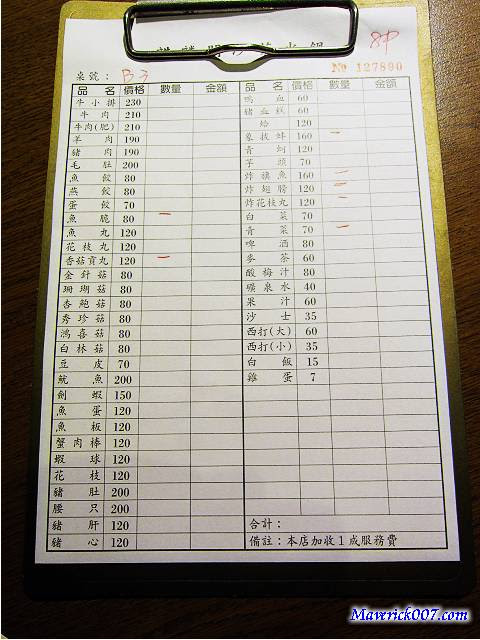 8P
№ 127890
桌號： B3
品 名 價格 數量 金額
牛小排 230
牛 肉 210
牛肉(肥) 210
羊 肉 190
豬 肉 190
毛 肚 200
魚 餃 80
燕 餃 80
蛋 餃 70
魚 脆 80 一
魚 丸 120
花枝丸 120
香菇貢丸 120 一
金針菇 80
珊瑚菇 80
杏鮑菇 80
秀珍菇 80
鴻喜菇 80
白林菇 80
豆 皮 70
魷 魚 200
劍 蝦 150
魚 蛋 120
魚 板 120
蟹肉棒 120
蝦 球 120
花 枝 120
豬 肚 200
腰 只 200
豬 肝 120
豬 心 120
品 名 價格 數量 金額
鴨 血 60
豬血糕 60
蛤 120
象拔蚌 160 一
青 蚵 120
芋 頭 70
炸旗魚 160 一
炸翅膀 120 二
炸花枝丸 120 一
白 菜 70
青 菜 70 一
啤 酒 80
麥 茶 60
酸梅汁 80
礦泉水 40
果 汁 60
沙 士 35
西打(大) 60
西打(小) 35
白 飯 15
雞 蛋 7
合計：
備註：本店加收1成服務費
Maverick007.com